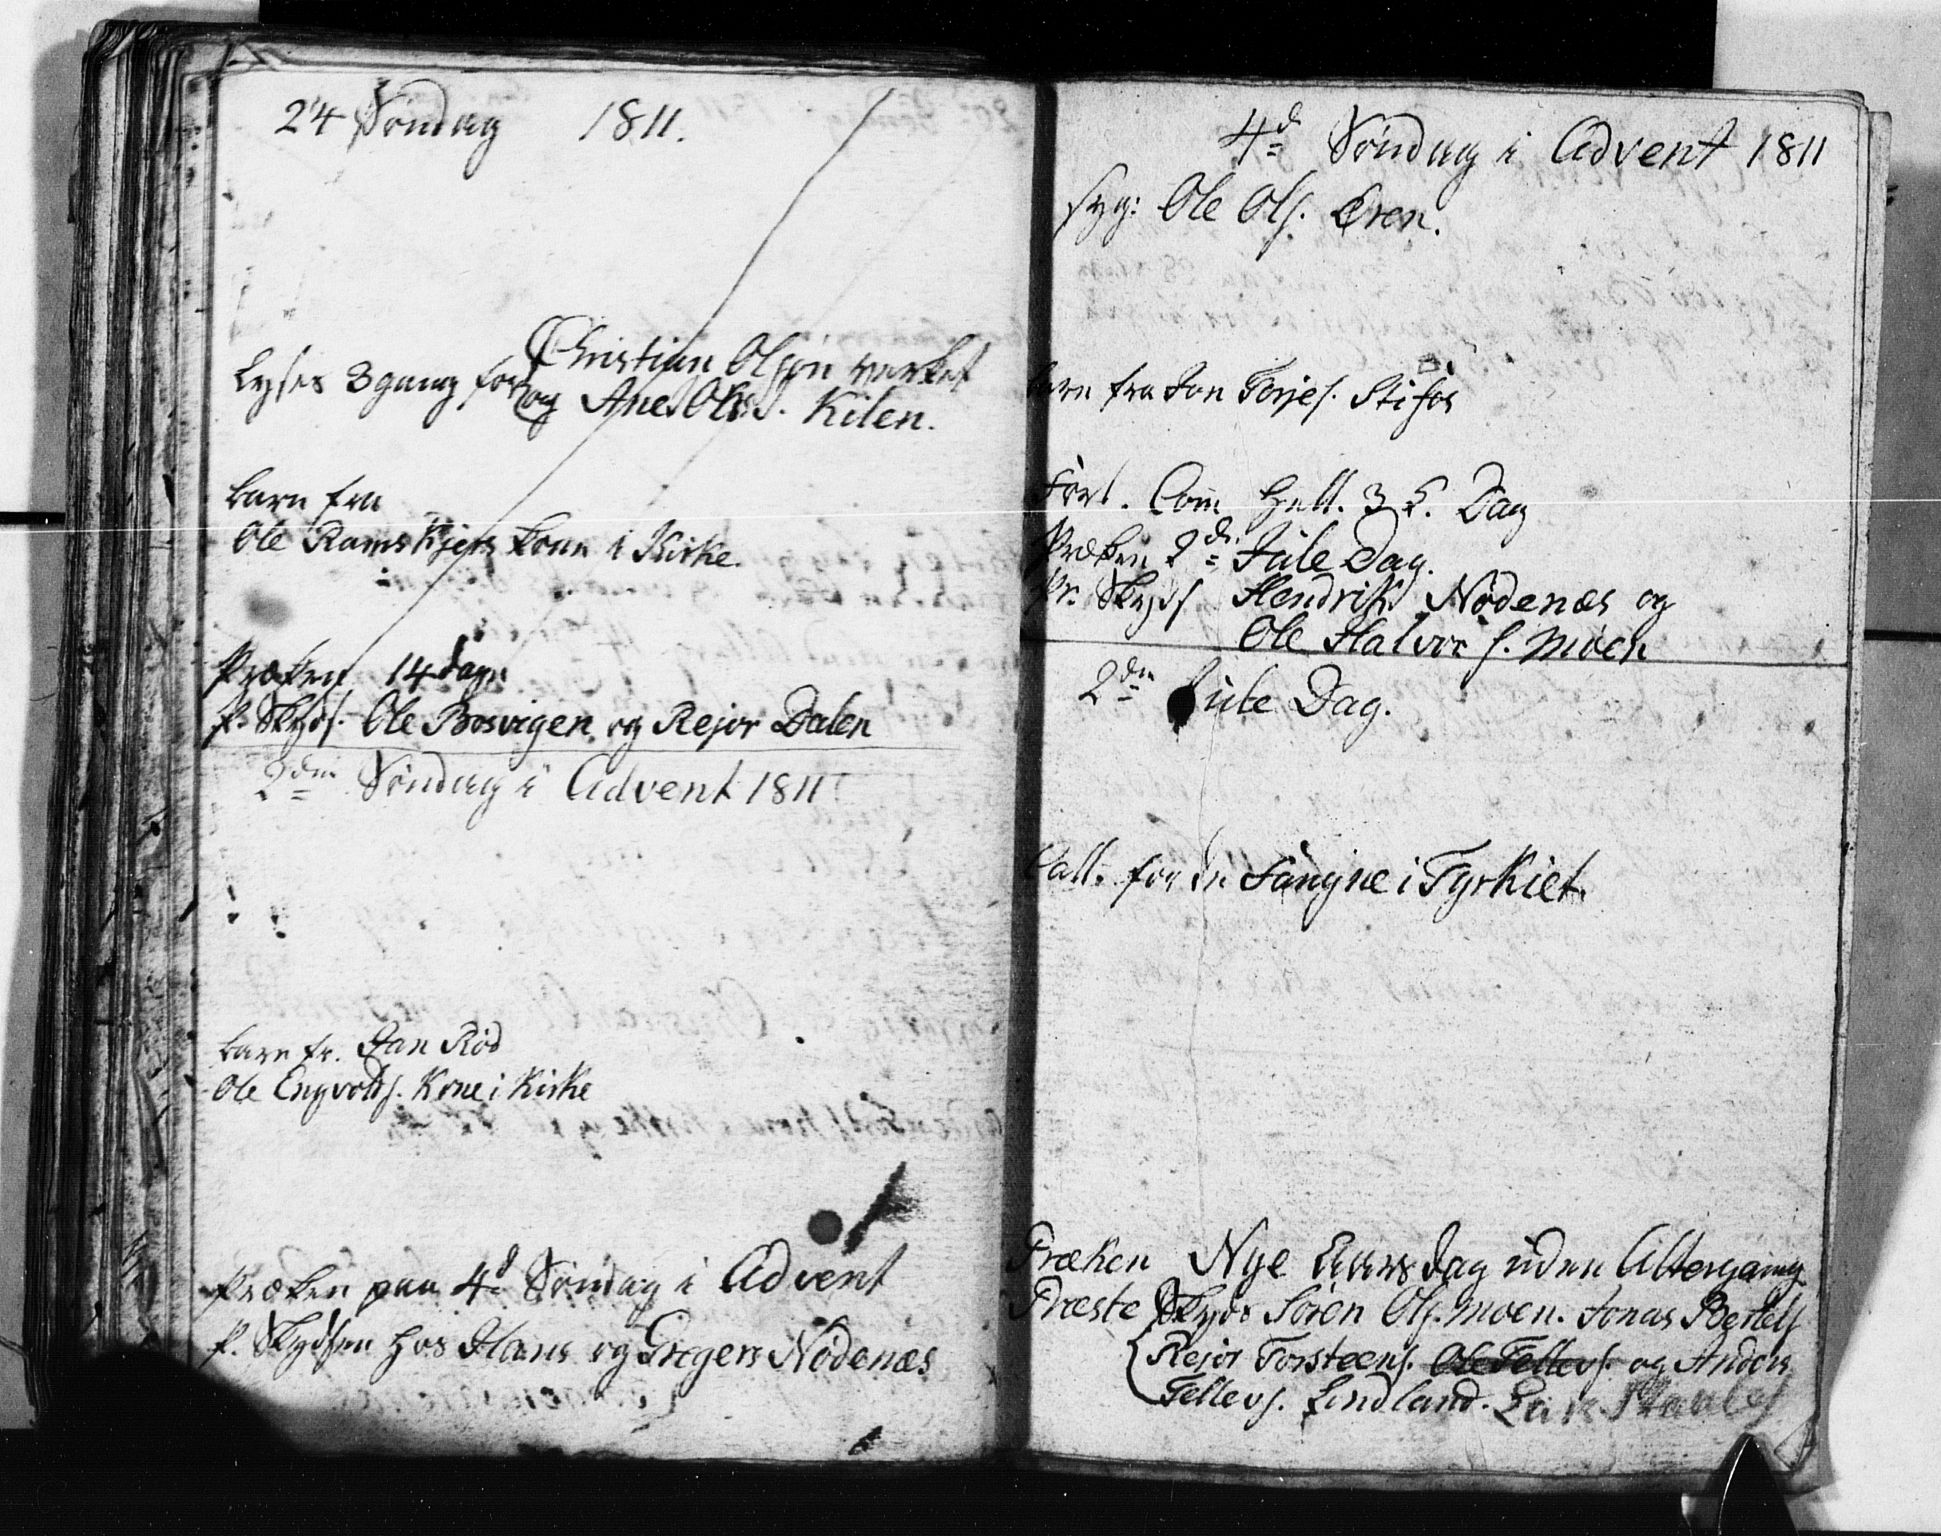 24 Søndag 1811.
Lyses 3 gang for Christian Olsøn verket
og Ane Olsd. Kilen.
barn fra
Ole Ramskjers kone i Kirke.
Præken 14 dage
P. Skyds. Ole Bosvigen og Rejor Dalen
2den Søndag i Advent 1811
barn fr. Jan Rød
Ole Engvolds. Kone i Kirke
Præken paa 4d Søndag i Advent
P. Skydsen hos Hans og Gregers Nødenæs
4d Søndag i Advent 1811
syg: Ole Ols. Eren.
barn fra Jon Terjes. Stifos
Com Hell. 3 K. Dag
Præken 2de Jule Dag.
Pr. Skyds Hendrik Nødenæs og
Ole Halvors. Moen
2den Jule Dag.
Call. for de Fangne i Tyrkiet.
Præken Nye Aars dag uden Altergang
Præste Skyds Søren Ols. Moen. Jonas Bertels
Rejor Torsteens. Ole Tellevs. og Anders
Tellevs. Lindland.